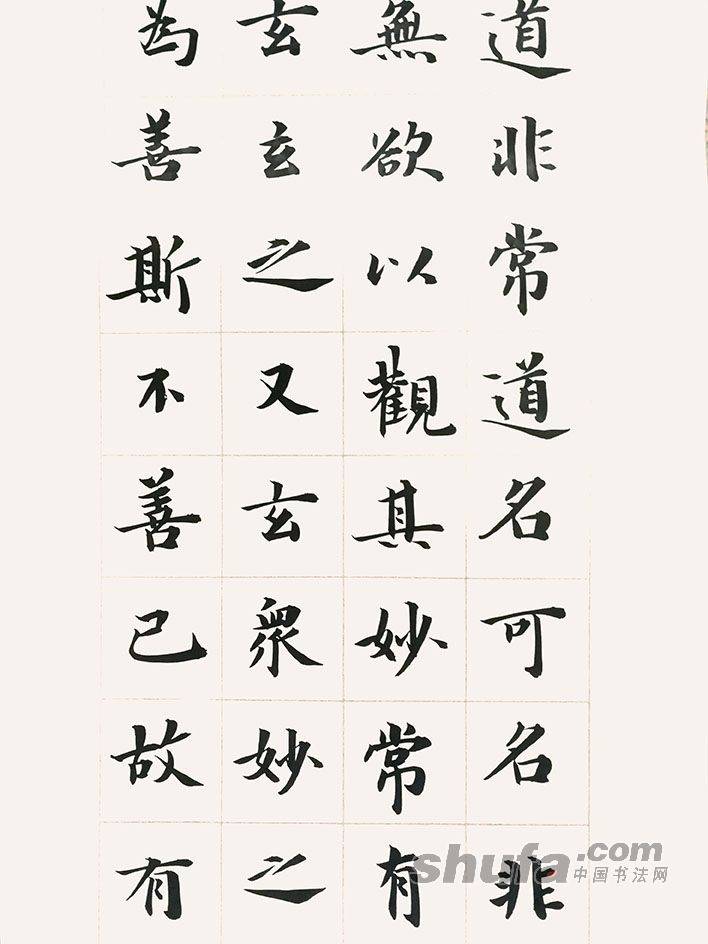 道非常道名可名非
無欲以觀其妙常有
玄玄之又玄衆妙之
為善斯不善已故有
shufa.com
中国书法网